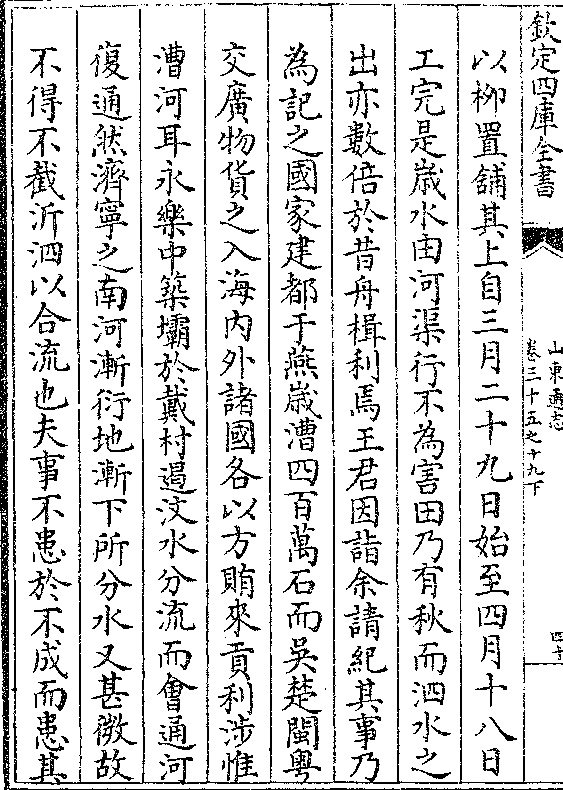 欽定四庫全書
山東通志
卷三十五之十九下
四十
以柳置舖其上自三月二十九日始至四月十八日
工完是嵗水由河渠行不為害田乃有秋而泗水之
出亦數倍於昔舟楫利焉王君因詣余請紀其事乃
為記之國家建都于燕嵗漕四百萬石而吳楚閩粵
交廣物貨之入海内外諸國各以方賄來貢利涉惟
漕河耳永樂中築壩於戴村遏汶水分流而會通河
復通然濟寧之南河漸衍地漸下所分水又甚微故
不得不截沂泗以合流也夫事不患於不成而患其